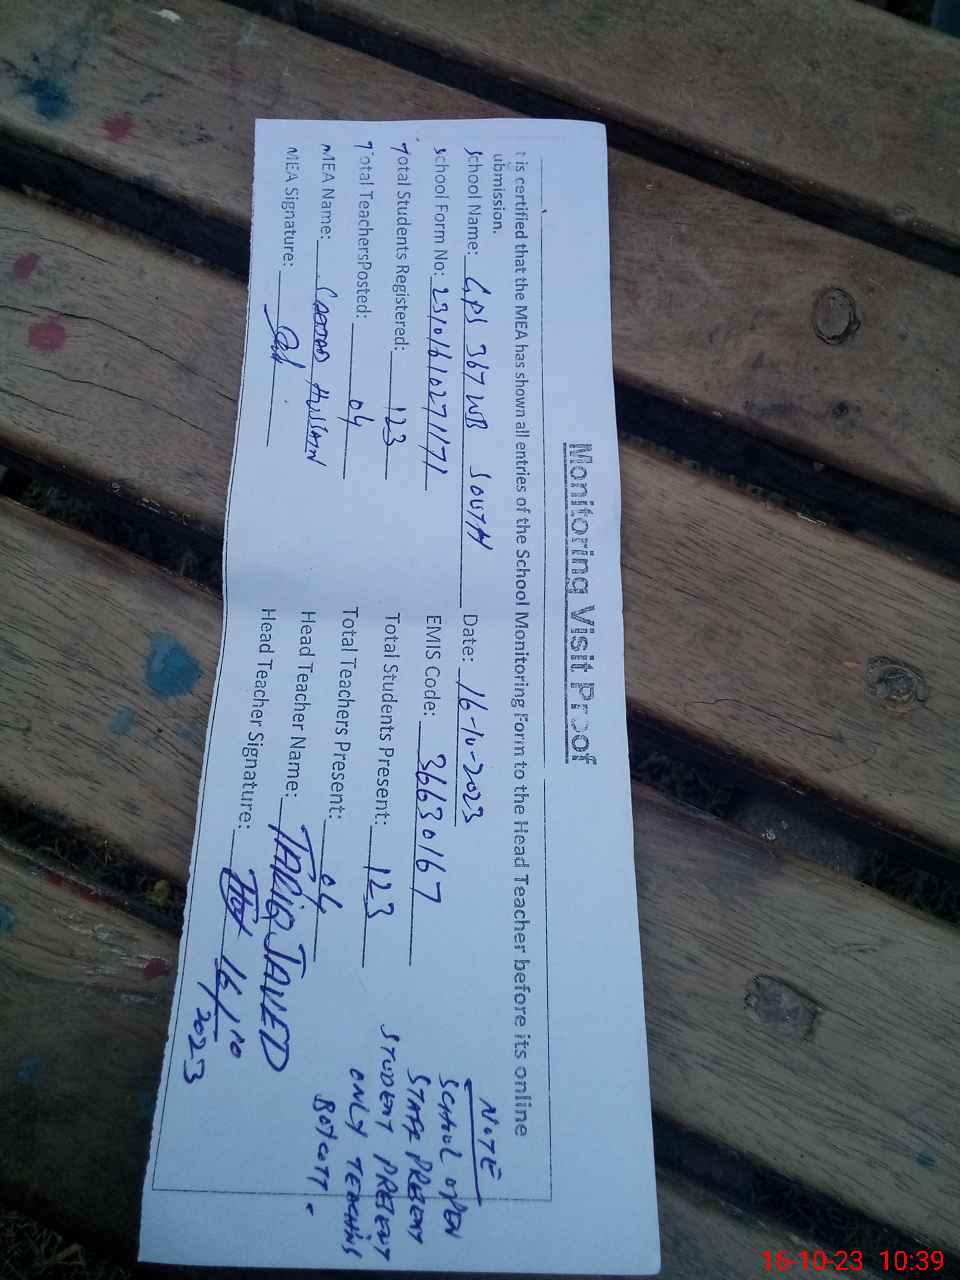 Monitoring Visit Proof
t is certified that the MEA has shown all entries of the School Monitoring Form to the Head Teacher before its online
ubmission.
School Name: GPS 367 WB SOUTH Date: 16-10-2023
School Form No: 23101610271171 EMIS Code: 36630167
Total Students Registered: 123 Total Students Present: 123
Total TeachersPosted: 04 Total Teachers Present: 04
MEA Name: HUSSAIN Head Teacher Name: TARIQ JAVED
MEA Signature: Head Teacher Signature: 16/10
2023
NOTE
SCHOOL OPEN
STAFF PRESENT
STUDENT PRESENT
ONLY TEACHING
BOYCOTT.
16-10-23 10:39